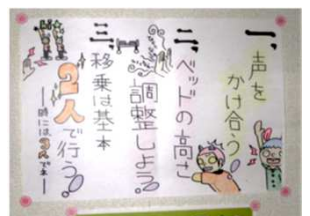 一、声を
かけ合う
二、ベッドの高さ
調整しよう。
三、移乗は基本
2人で行う。
―時には3人でネ―